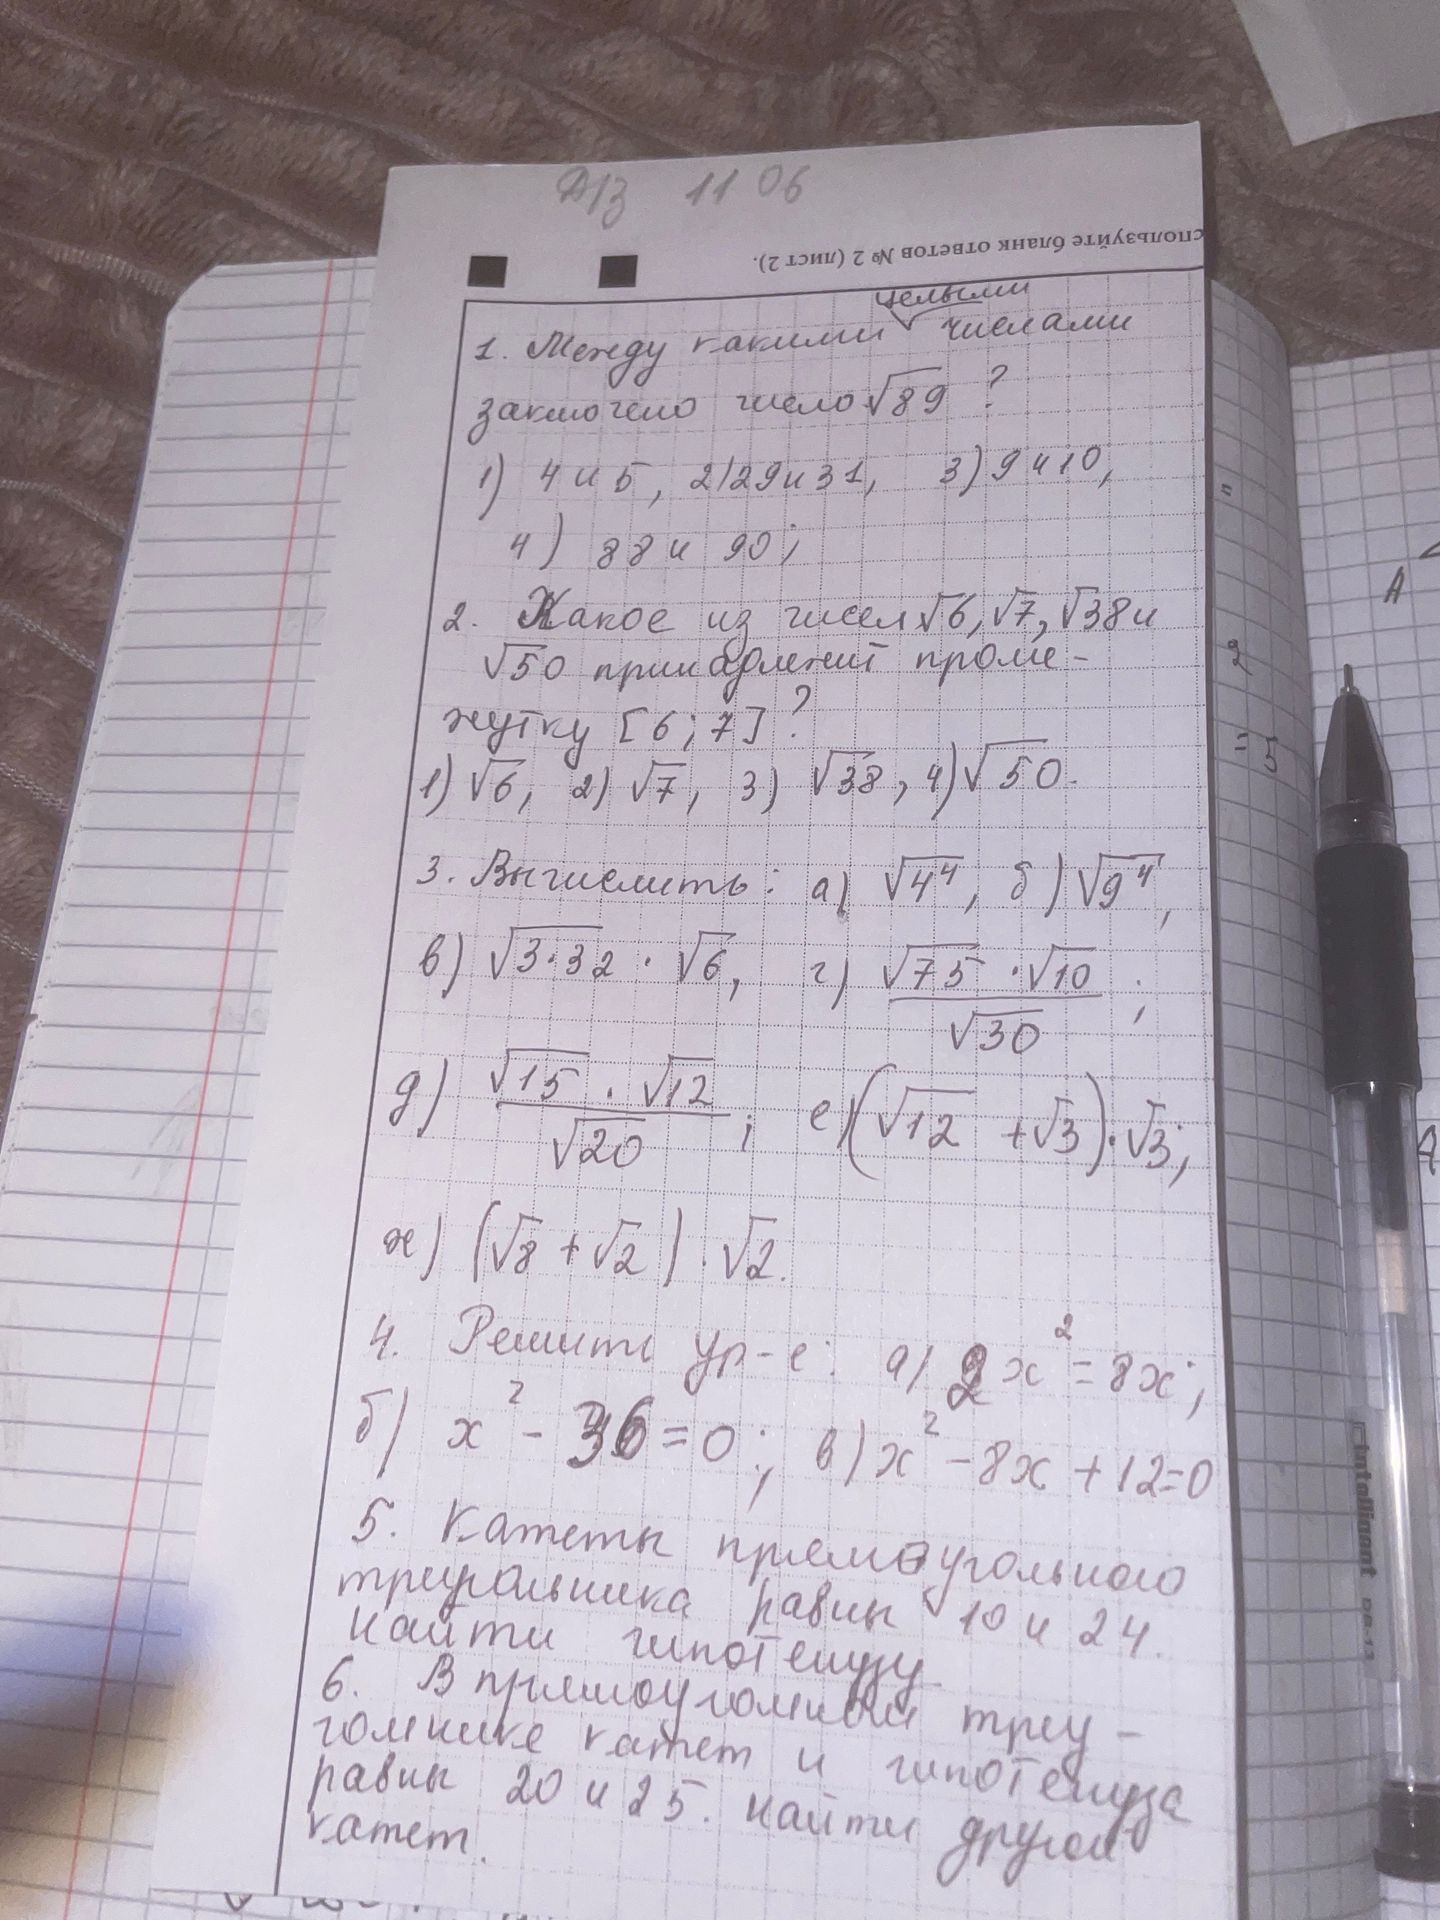 Д/З 11 06
спользуйте бланк ответов № 2 (лист 2).
целыми
1. Между какими числами
заключено число √89 ?
1) 4 и 5, 2) 29 и 31, 3) 9 и 10,
4) 88 и 90;
2. Какое из чисел √6, √7, √38 и
√50 принадлежит проме-
жутку [6; 7] ?
1) √6, 2) √7, 3) √38, 4) √50.
3. Вычислить: а) √4⁴, б) √9⁴,
в) √3·32 · √6, г) √75 · √10 / √30 ;
д) √15 · √12 / √20 ; е) (√12 + √3) · √3;
ж) (√8 + √2) · √2.
4. Решить ур-е: а) 2x² = 8x;
б) x² - 36 = 0; в) x² - 8x + 12 = 0
5. Катеты прямоугольного
треугольника равны 10 и 24.
Найти гипотенузу.
6. В прямоугольном треу-
гольнике катет и гипотенуза
равны 20 и 25. Найти другой
катет.
A